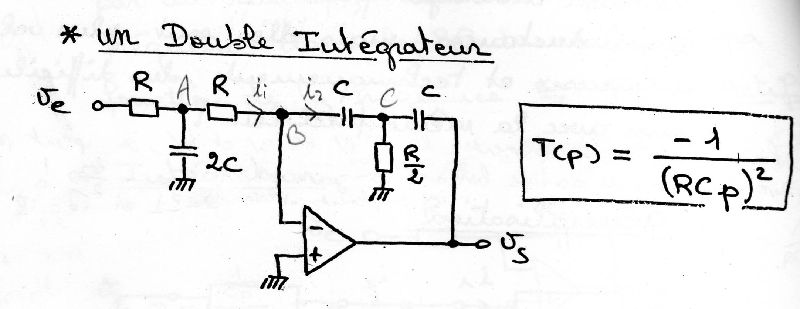 * un Double Intégrateur
R A R i₁ i₂ C C C
Ve
B
2C
R/2
T(p) = -1/(RCp)²
-
+
Vs